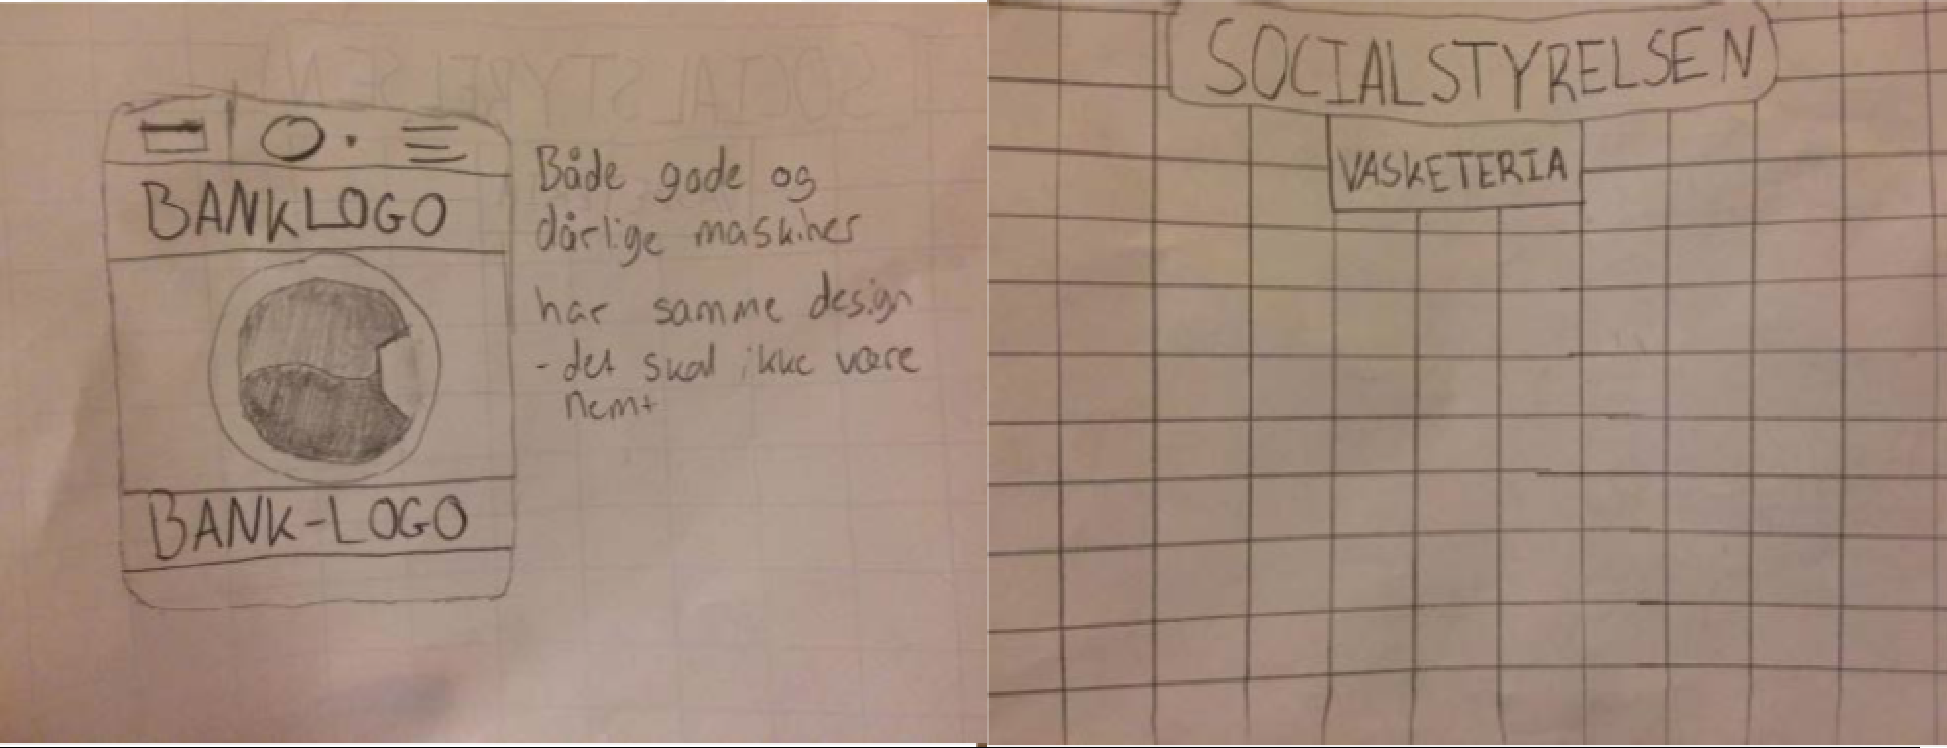 BANKLOGO
BANK-LOGO
Både gode og
dårlige maskiner
har samme design
- det skal ikke være
nemt
SOCIALSTYRELSEN
VASKETERIA